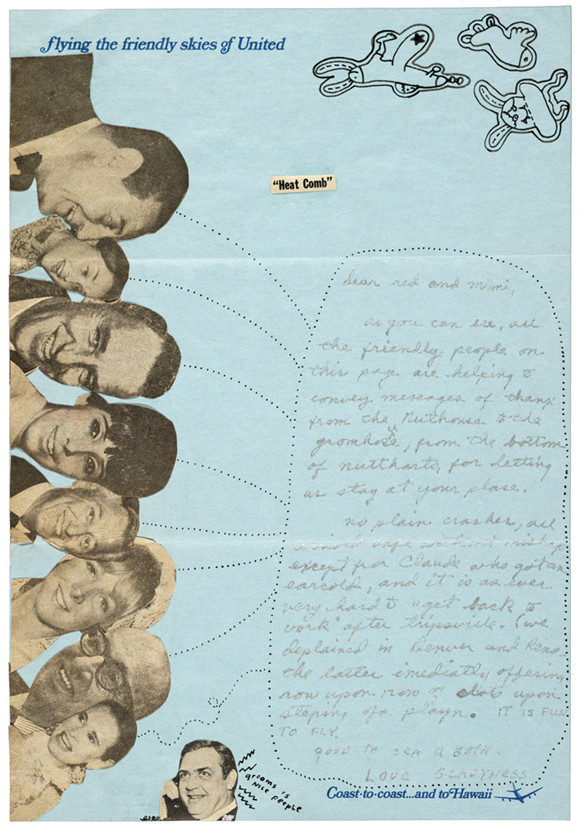 flying the friendly skies of United
"Heat Comb"
dear red and mimi,
as you can see, all
the friendly people on
this page are helping to
convey messages of thanx
from the Nuthouse to the
gromhose, from the bottom
of nutthartz, for letting
us stay at your plase.
no plain crashes, all
except for Claude who got an
earcold, and it is as ever
very hard to "get back to
work" after tripsville. (we
deplained in Denver and Reno
the latter imediatly offering
row upon row of slots upon
steping off playn. IT IS FUN
TO FLY.
good to see u both
Love GLADYNESS
grooms is
nice people
Coast-to-coast...and to Hawaii